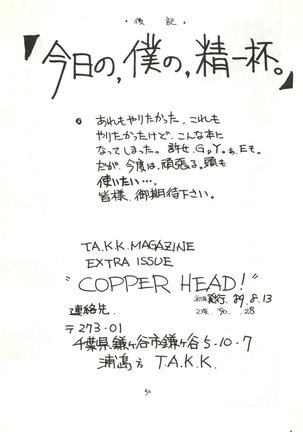 ・後記・
『今日の,僕の,精一杯。』
あれもやりたかった、これも
やりたかったけど、こんな本に
なってしまった。許せ、G。Y。も、Eも。
だが、今度は、頑張る。頭も
使いたい…。
皆様、御期待下さい。
T.A.K.K. MAGAZINE
EXTRA ISSUE
"COPPER HEAD!"
初版発行. 89. 8. 13
2版. 90. . 28
連絡先.
〒273-01
千葉県鎌ヶ谷市鎌ヶ谷5-10-7
浦嶌方 T.A.K.K.